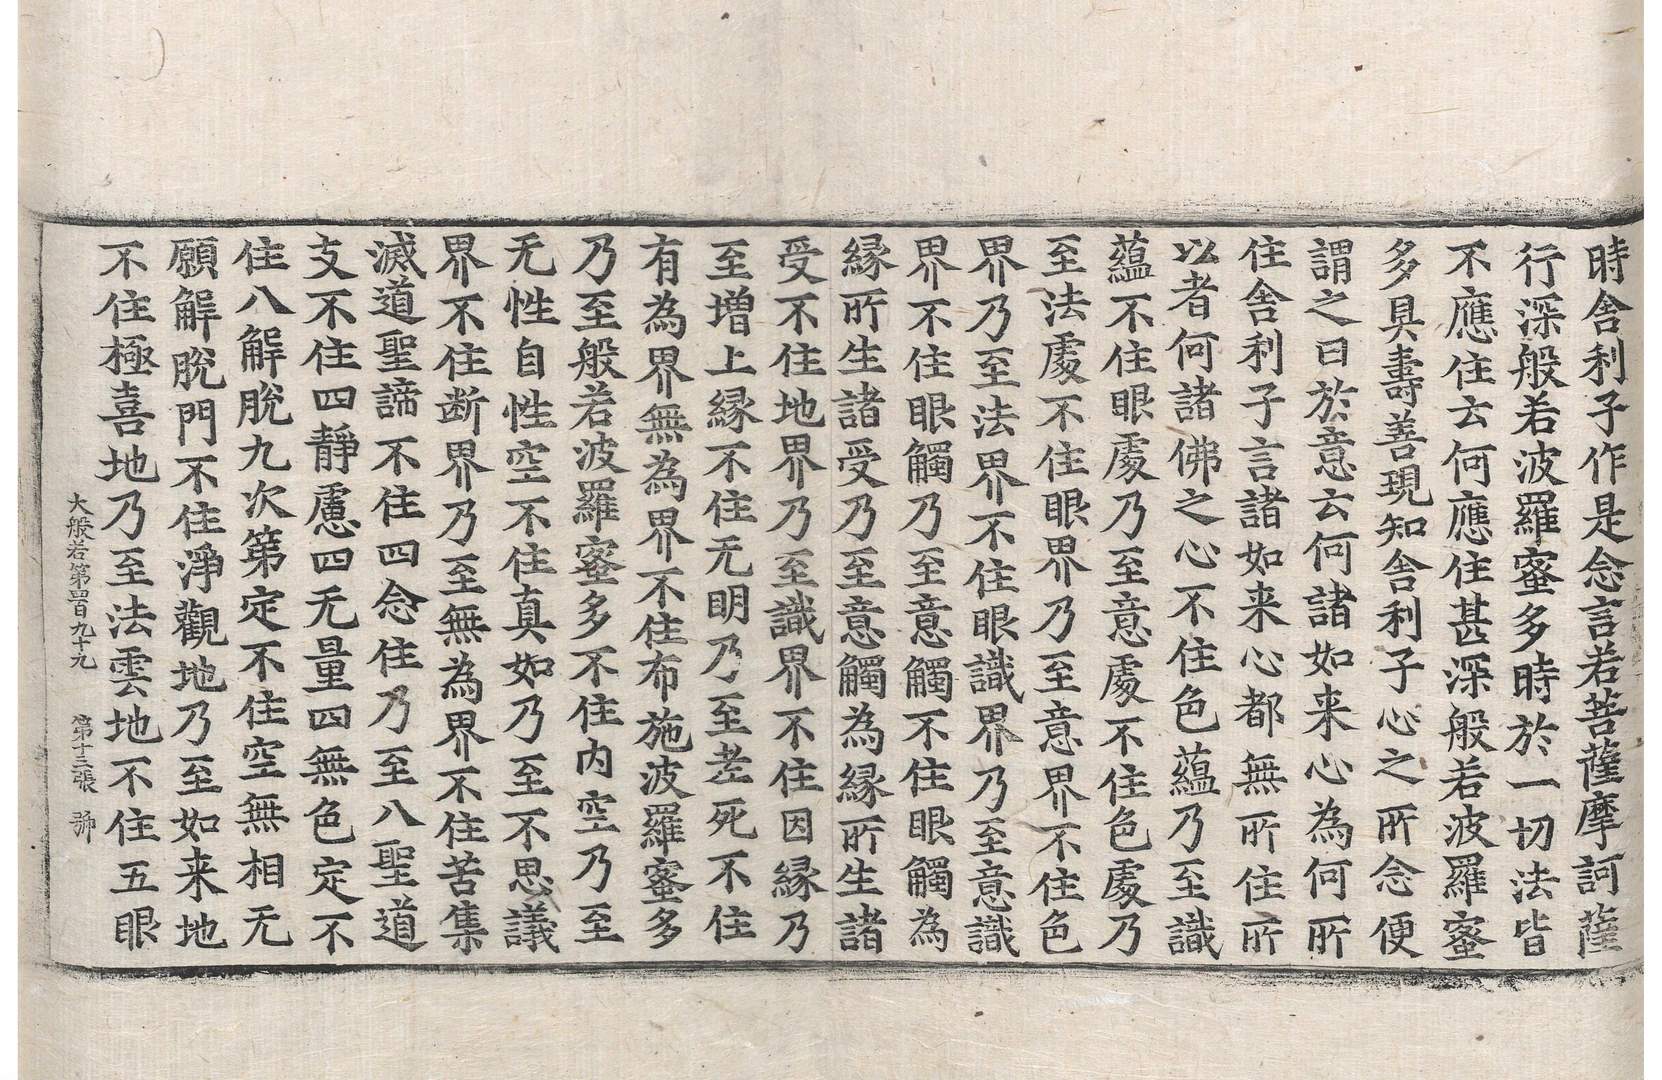 時舍利子作是念言若菩薩摩訶薩
行深般若波羅蜜多時於一切法皆
不應住云何應住甚深般若波羅蜜
多具壽善現知舍利子心之所念便
謂之曰於意云何諸如来心為何所
住舍利子言諸如来心都無所住所
以者何諸佛之心不住色蘊乃至識
蘊不住眼處乃至意處不住色處乃
至法處不住眼界乃至意界不住色
界乃至法界不住眼識界乃至意識
界不住眼觸乃至意觸不住眼觸為
縁所生諸受乃至意觸為縁所生諸
受不住地界乃至識界不住因縁乃
至增上縁不住无明乃至老死不住
有為界無為界不住布施波羅蜜多
乃至般若波羅蜜多不住内空乃至
无性自性空不住真如乃至不思議
界不住断界乃至無為界不住苦集
滅道聖諦不住四念住乃至八聖道
支不住四靜慮四无量四無色定不
住八解脫九次第定不住空無相无
願解脫門不住淨觀地乃至如来地
不住極喜地乃至法雲地不住五眼
大般若第四百九十九 第十三張 号